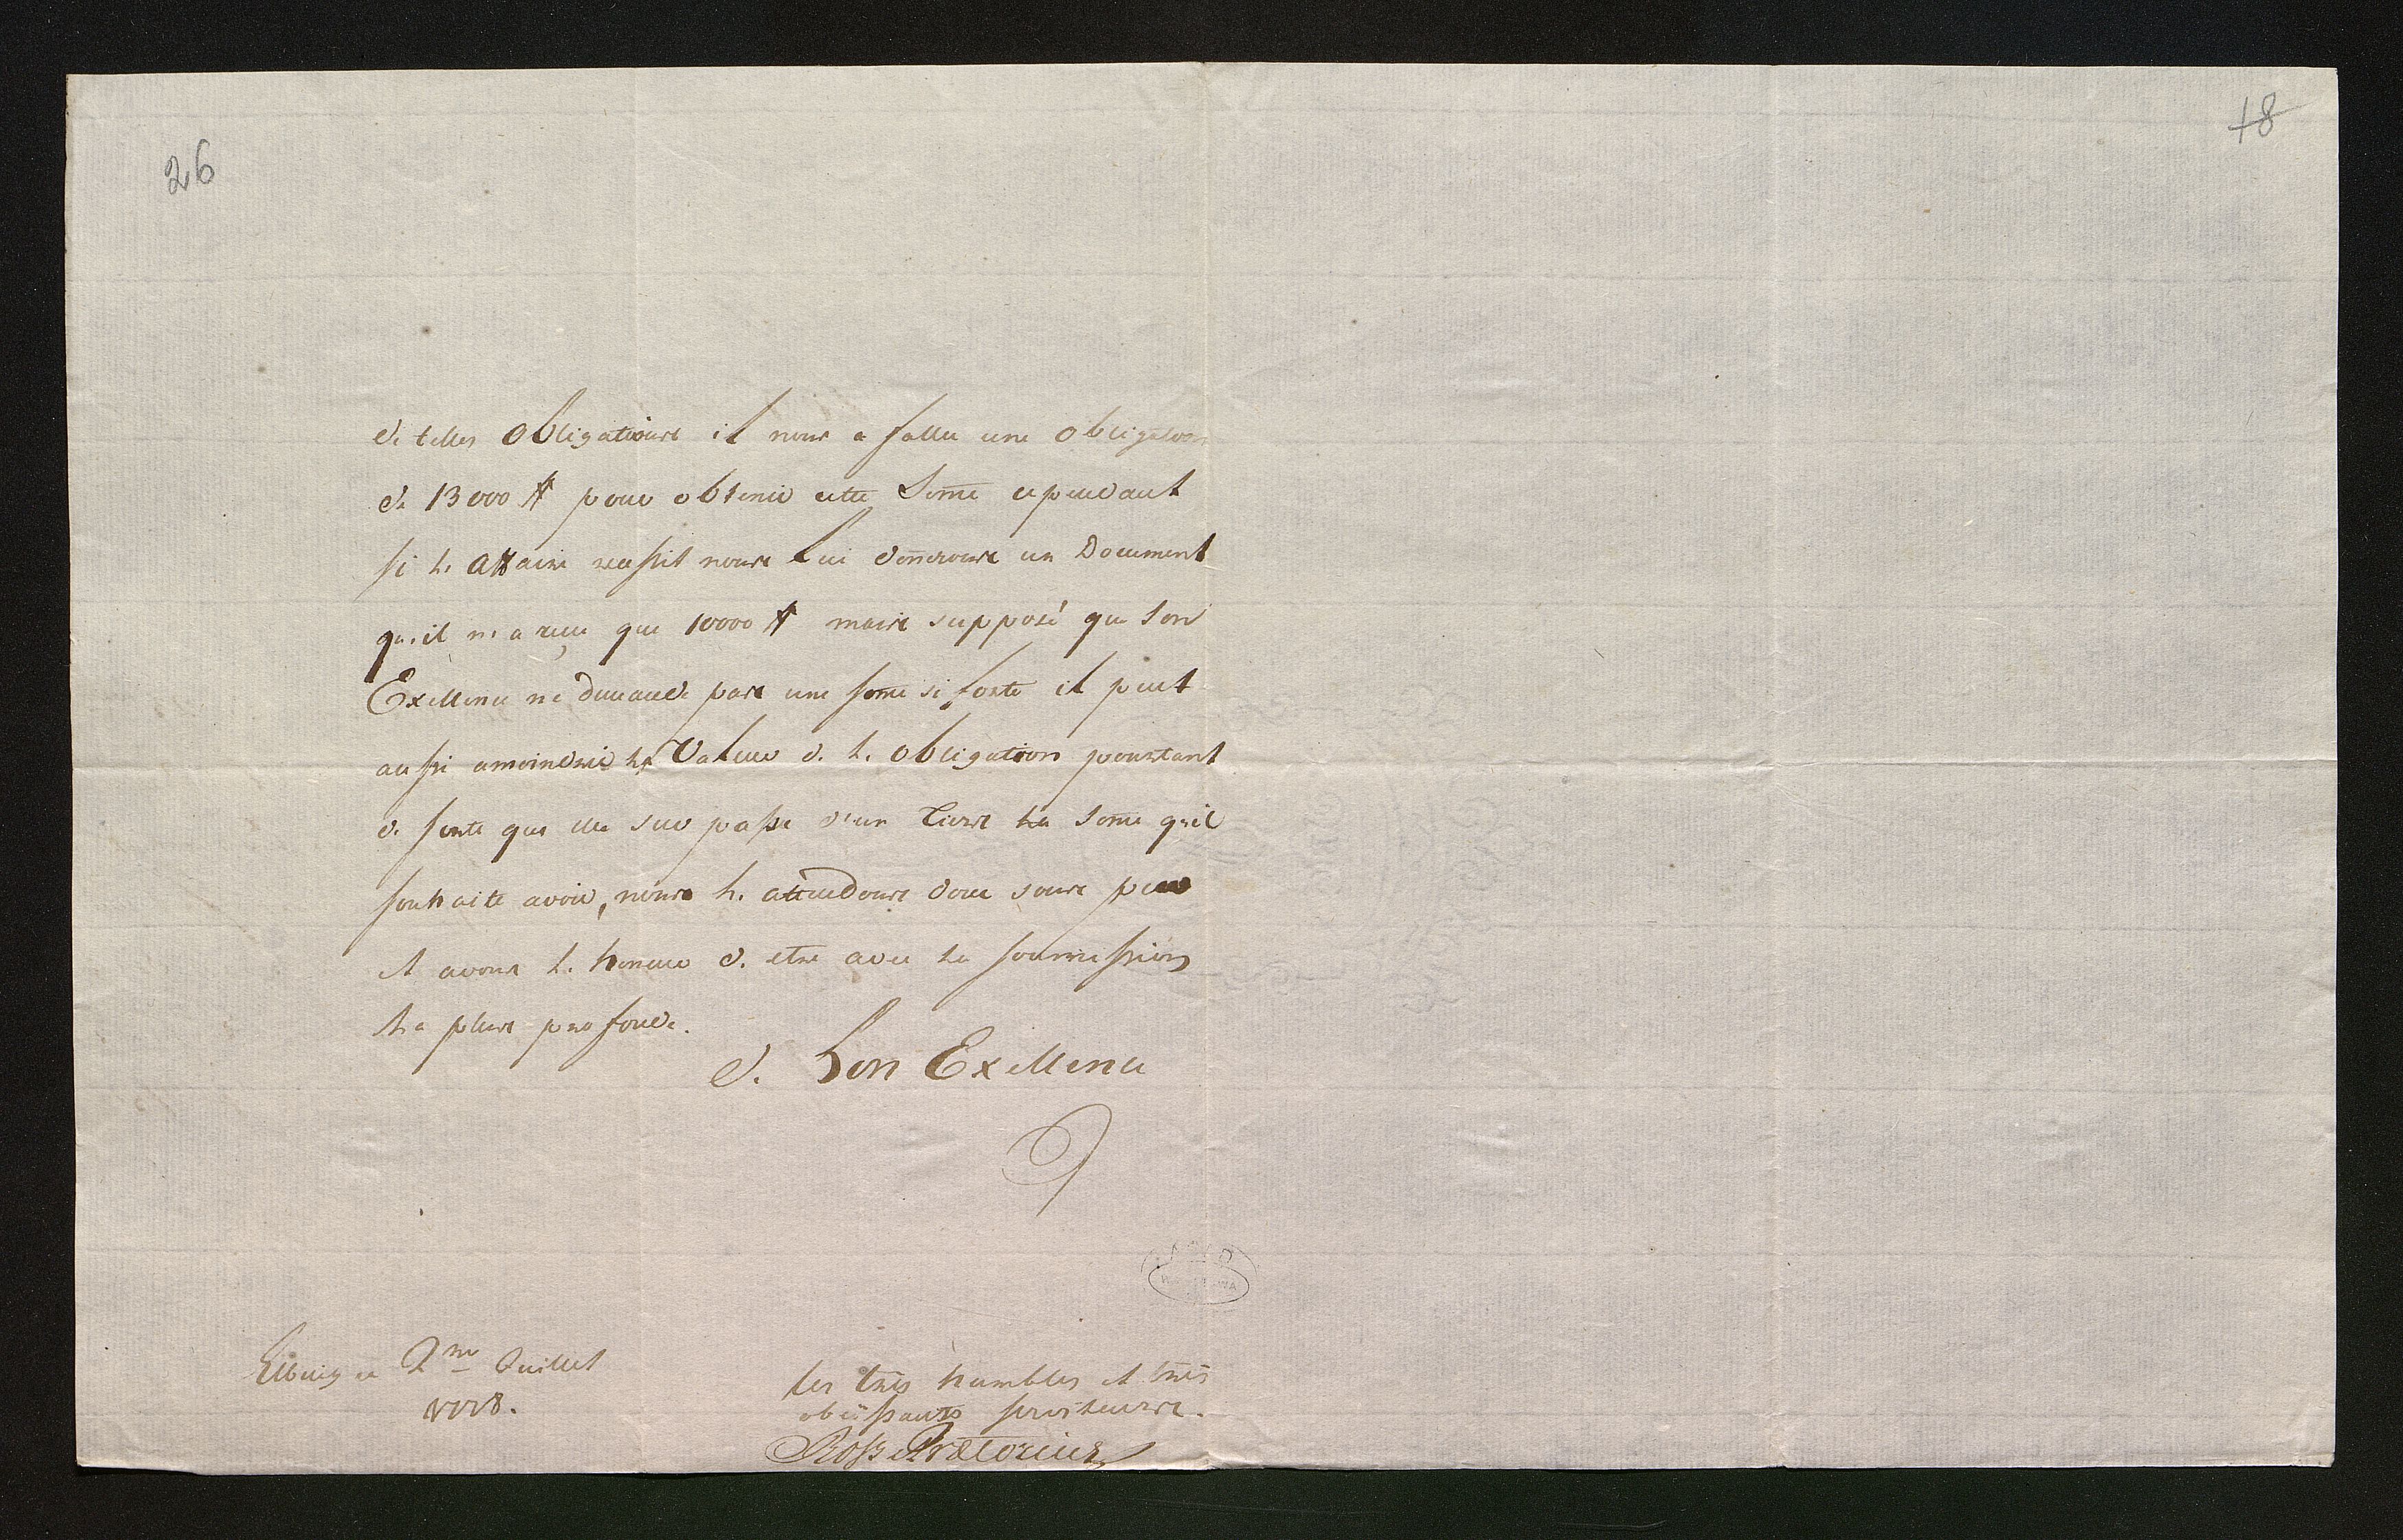 26
18
de telles Obligations il nous a fallu une obligation
de 13000 # pour obtenir cette Some cependant
si l. Affaire reussit nous lui donnerons un Document
qu'il n'a reçu que 10000 # mais supposé que Son
Exellence ne demande pas une some si forte il peut
aussi amoindrir la Valeur d. l. obligation pourtant
d. sorte que elle surpasse d'un Tiers la some qu'il
souhaite avoir, nous l. attendons donc sous peu
et avons l. honeur d. etre avec la soumission
la plus profonde.
d. Son Exellence
Elbing ce 2me Juillet
les très humbles et très
obeissants serviteurs.